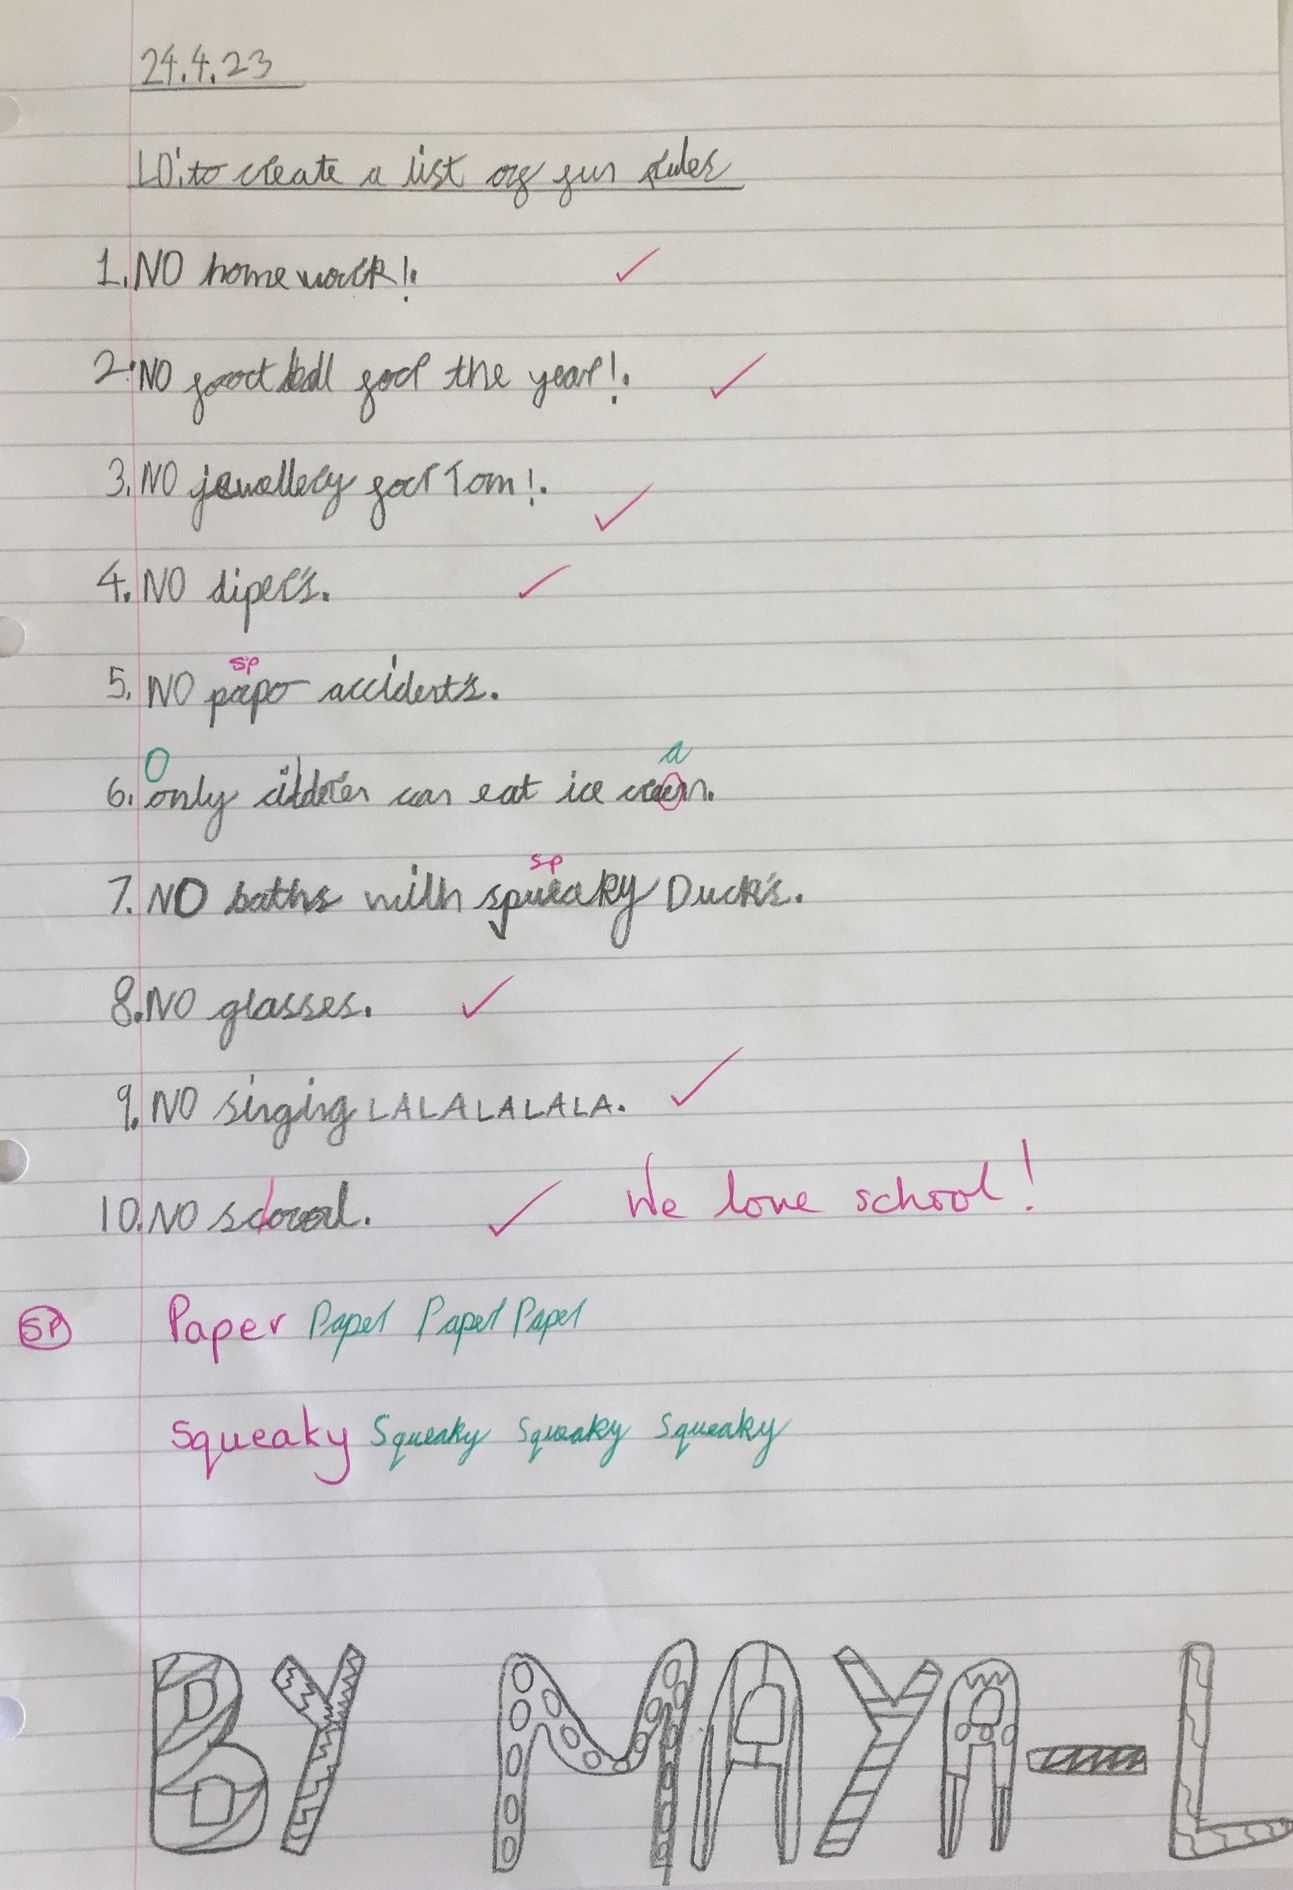 24.4.23
LO: to create a list of fun rules
1. NO homework!.
2. NO football for the year!.
3. NO jewellery for Tom!.
4. NO diper's.
sp
5. NO papo accident's.
O a
6. only cildren can eat ice creem.
sp
7. NO baths with spueaky Duck's.
8. NO glasses.
9. NO singing LALALALALA.
10. NO school. We love school!
SP Paper Paper Paper Paper
Squeaky Squeaky Squeaky Squeaky
BY MAYA-L